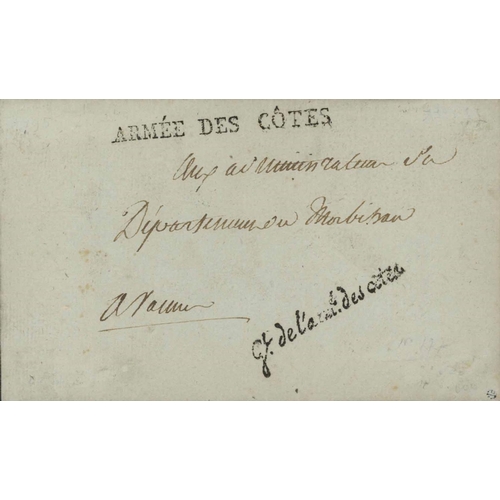 ARMÉE DES CÔTES
Aux administrateurs du
Département du Morbihan
A Vannes
de l'armé. des côtes